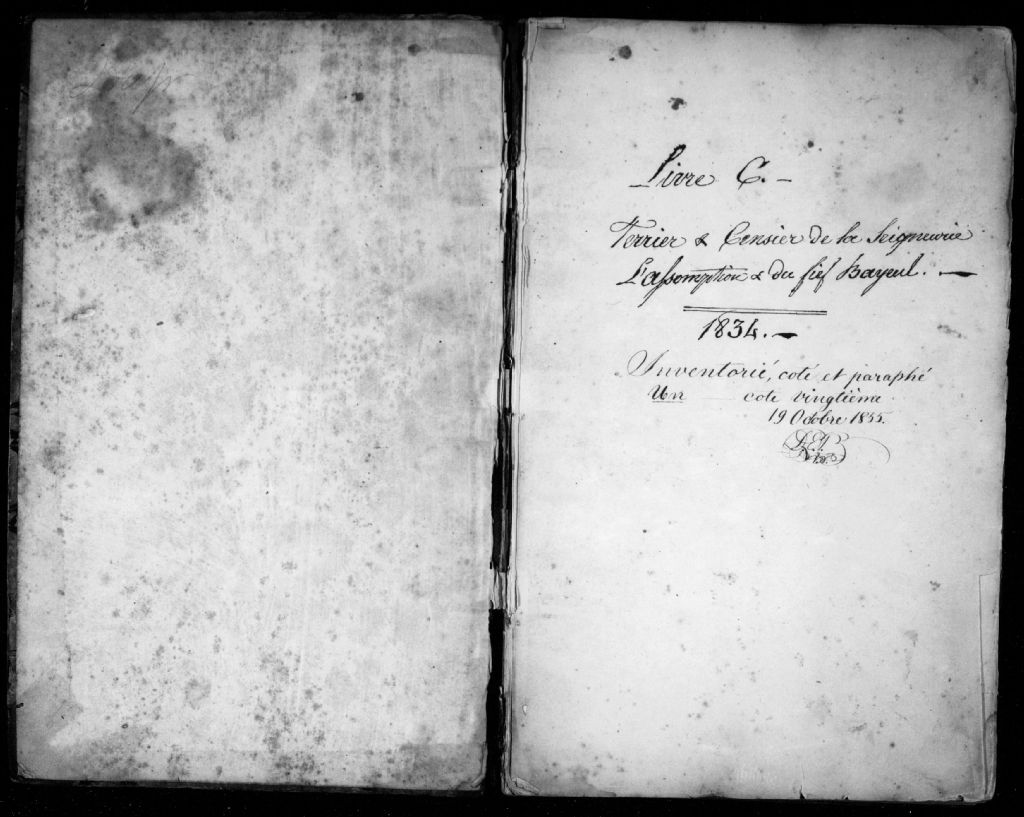 Livre C. -
Terrier & Censier de la Seigneurie
L'assomption & du fief Bayeul. -
1834. -
Inventorié, coté et paraphé
Un cote vingtième.
19 Octobre 1855.